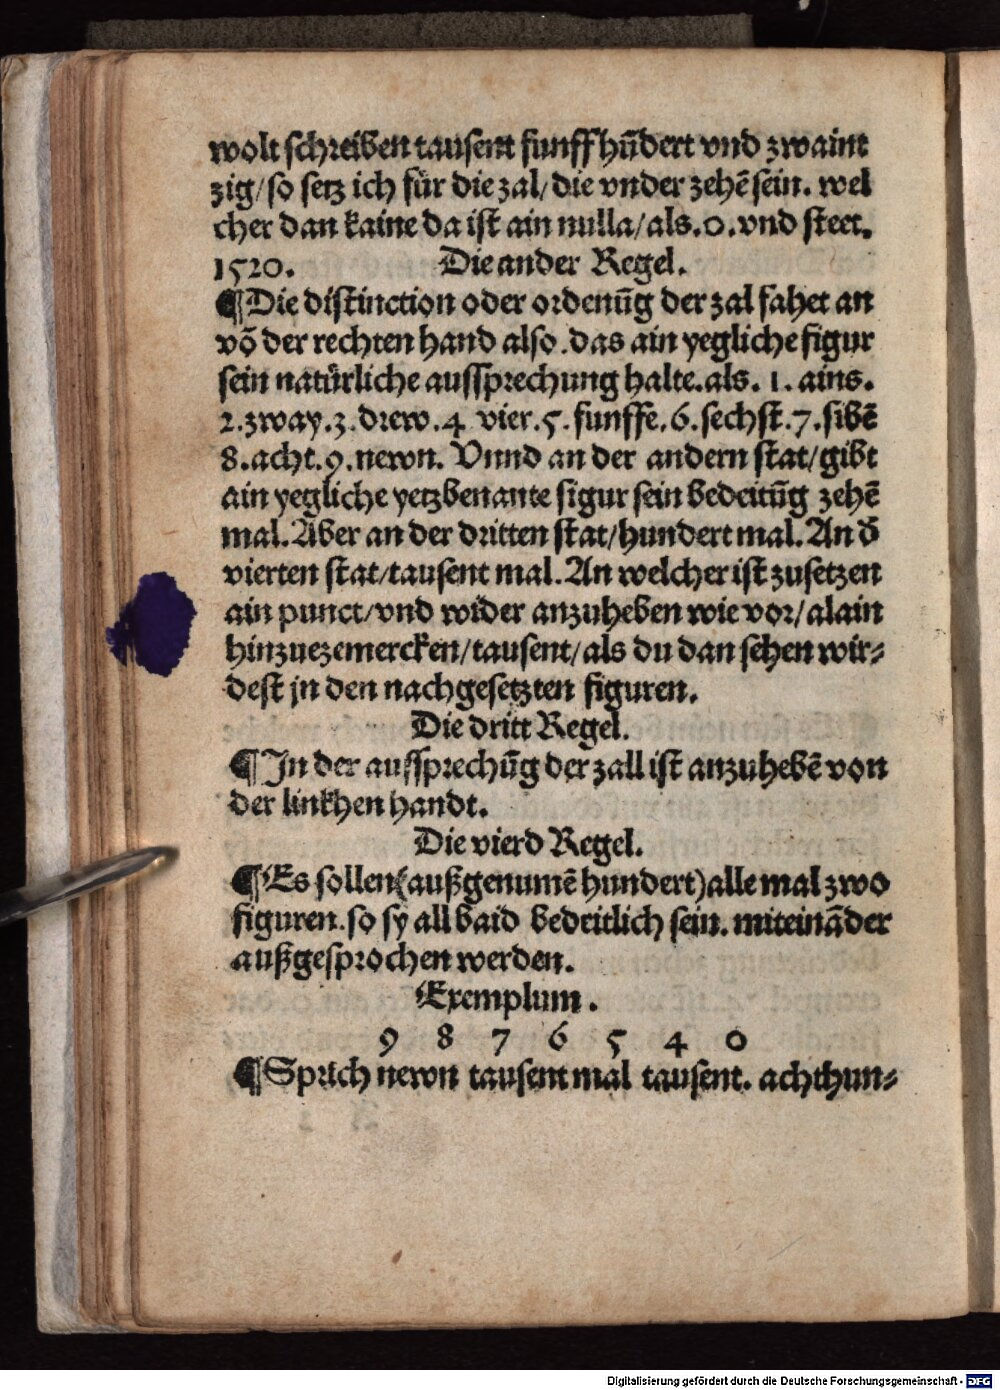 wolt schreiben tausent funffhũdert vnd zwaint
zig/so setz ich für die zal/die vnder zehẽ sein. wel
cher dan kaine da ist ain nulla/als.0.vnd steet.
1520. Die ander Regel.
¶Die distinction oder ordenũg der zal fahet an
võ der rechten hand also.das ain yegliche figur
sein natürliche aussprechung halte.als. 1. ains.
2.zway.3.drew.4 vier.5.funffe.6.sechst.7.sibẽ
8.acht.9.newn. Vnnd an der andern stat/gibt
ain yegliche yetzbenante figur sein bedeitũg zehẽ
mal.Aber an der dritten stat/hundert mal.An d̃
vierten stat/tausent mal.An welcher ist zusetzen
ain punct/vnd wider anzuheben wie vor/alain
hinzuezemercken/tausent/als du dan sehen wir⸗
dest jn den nachgesetzten figuren.
Die dritt Regel.
¶In der aussprechũg der zall ist anzuhebẽ von
der linkhen handt.
Die vierd Regel.
¶Es sollen(außgenumẽ hundert)alle mal zwo
figuren.so sy all baid bedeitlich sein.miteinãder
außgesprochen werden.
Exemplum.
9 8 7 6 5 4 0
¶Sprich newn tausent mal tausent. achthun⸗
Digitalisierung gefördert durch die Deutsche Forschungsgemeinschaft - DFG